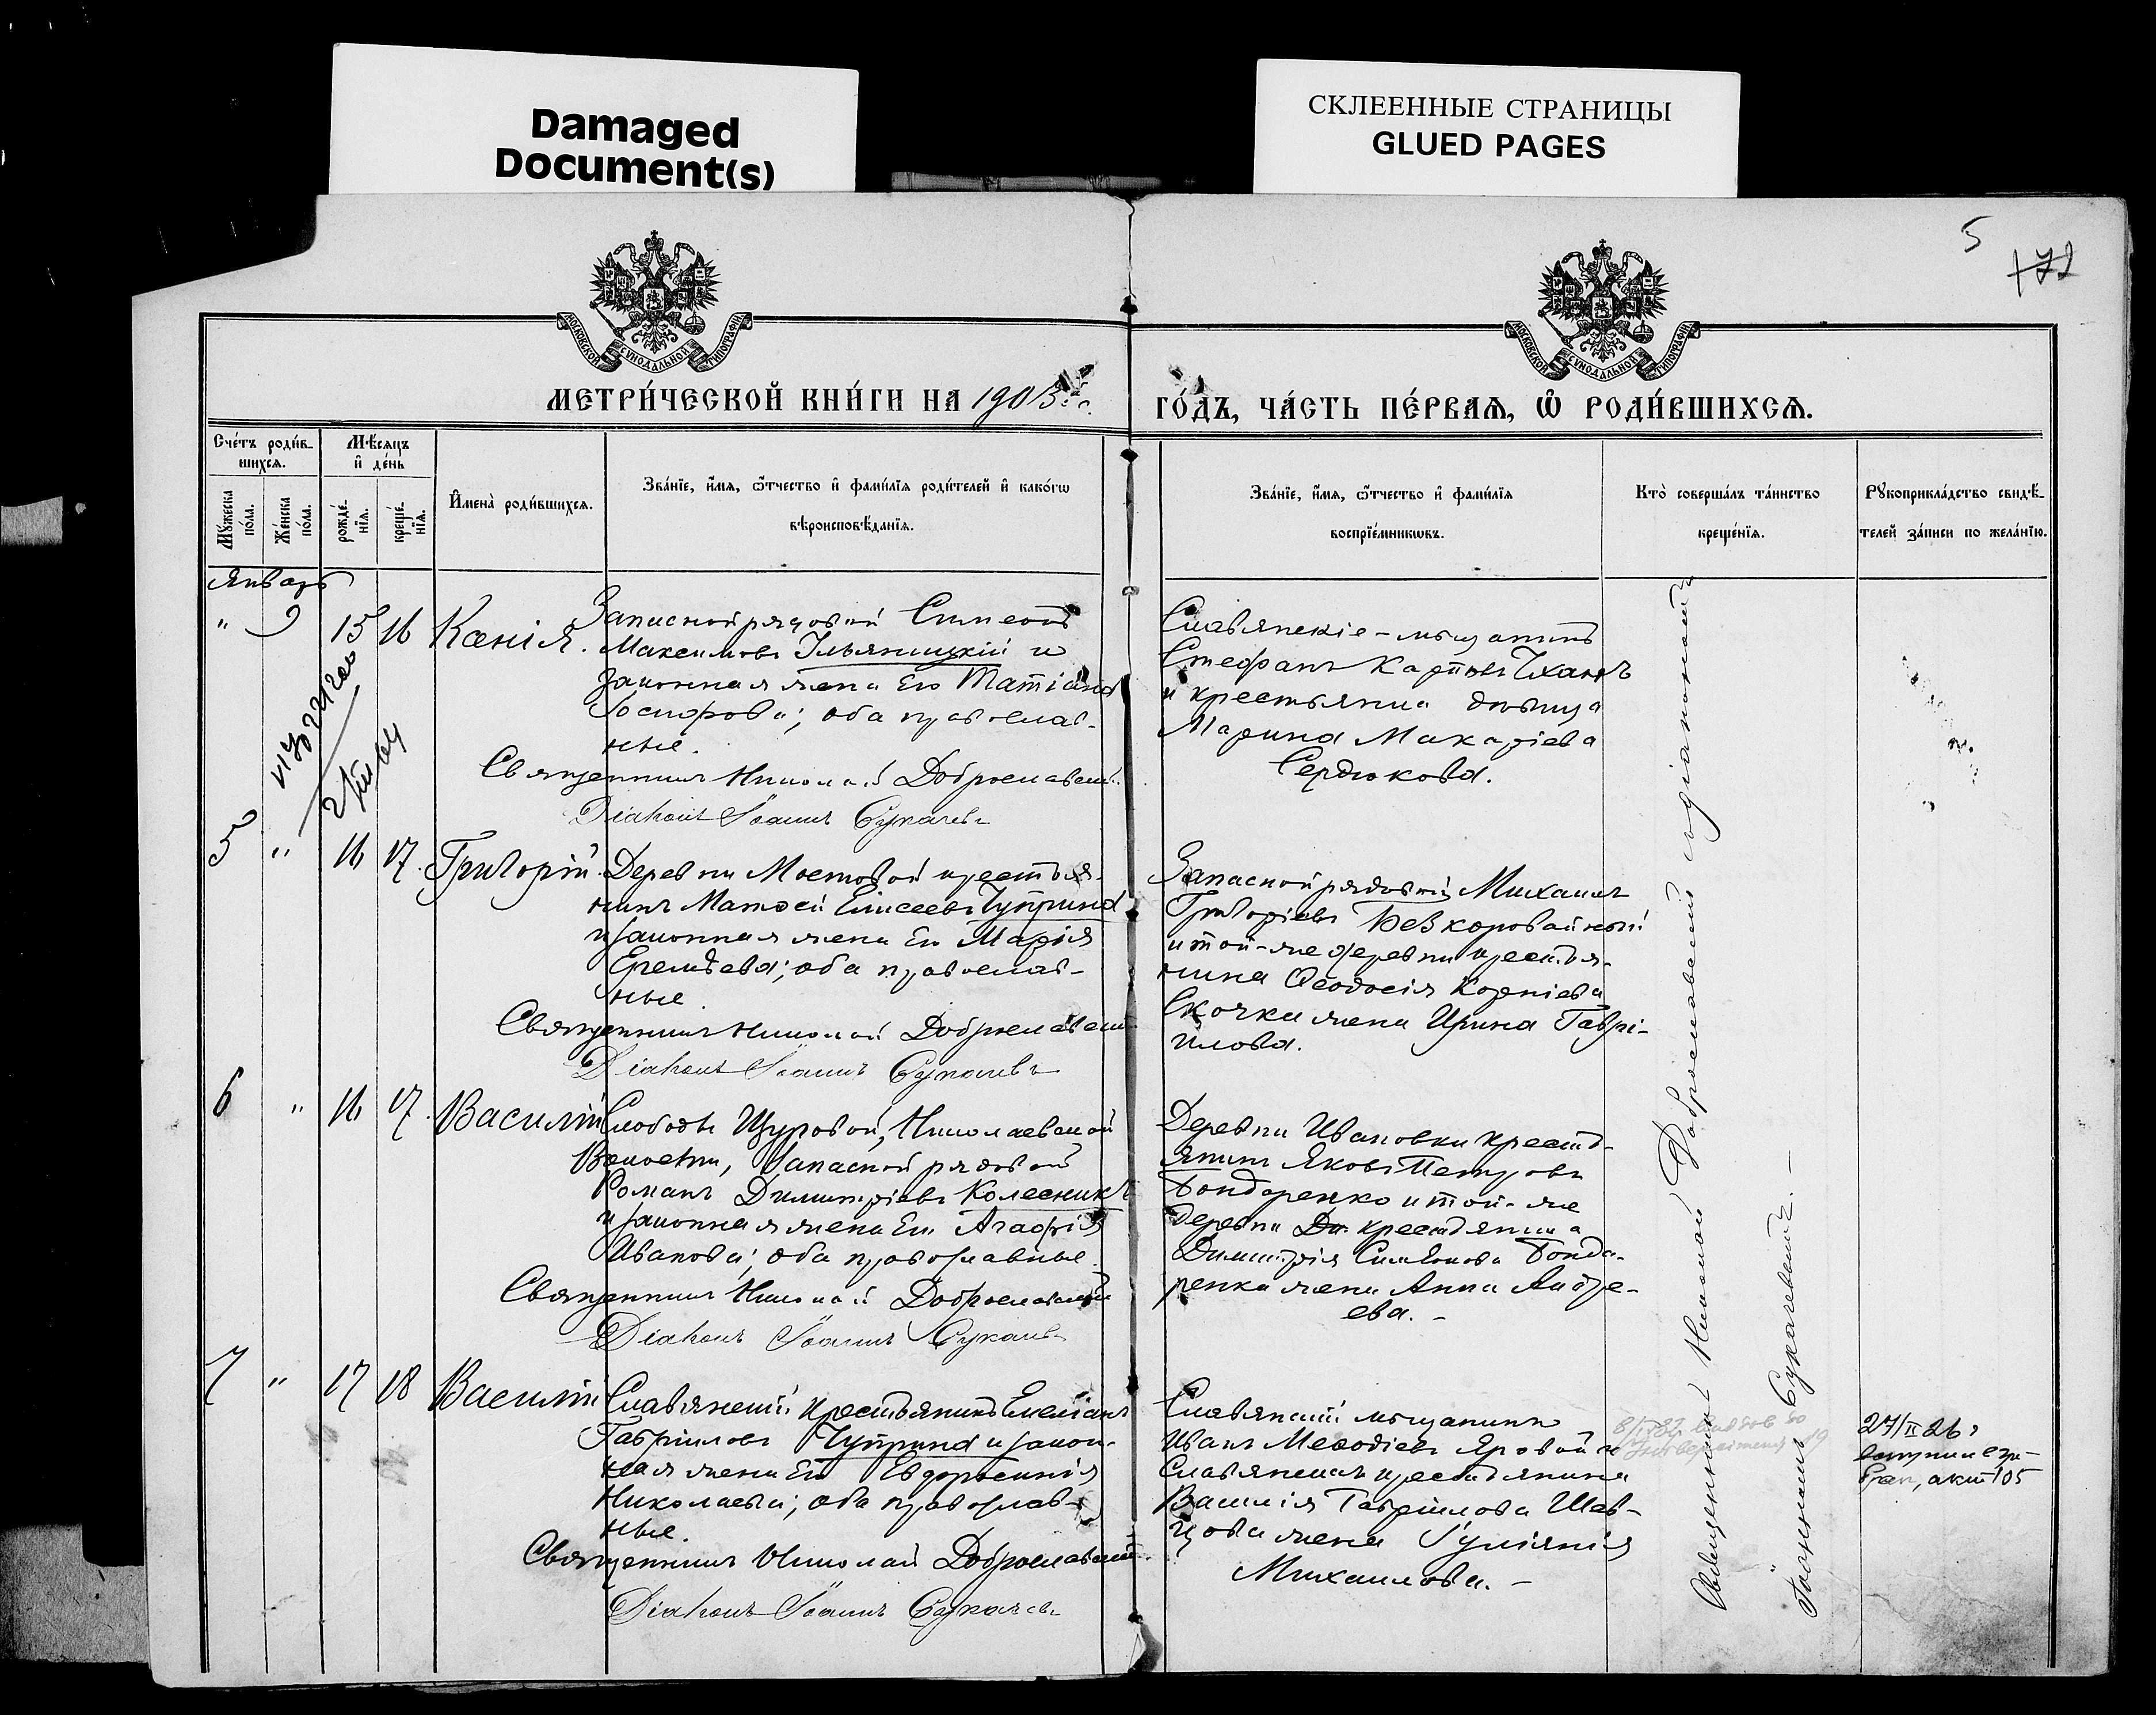 Damaged
Document(s)
СКЛЕЕННЫЕ СТРАНИЦЫ
GLUED PAGES
5
МОСКОВСКОЙ СѴНОДАЛЬНОЙ ТИПОГРАФІИ
МОСКОВСКОЙ СѴНОДАЛЬНОЙ ТИПОГРАФІИ
МЕТРИ́ЧЕСКОЙ КНИ́ГИ НА 1903
ГО́ДЪ, ЧА́СТЬ ПЕ́РВАѦ, Ѽ РОДИ́ВШИХСѦ.
Сче́тъ роди́в-
шихсѧ.
Мꙋ́жеска
по́ла.
Же́нска
по́ла.
Мѣ́сѧцъ
и҆ де́нь
рожде́-
нїѧ.
креще́-
нїѧ.
И҆мена̀ роди́вшихсѧ.
Зва́нїе, и҆́мѧ, ѻ҆́тчество и҆ фами́лїѧ роди́телей и҆ како́гѡ
вѣроисповѣ́данїѧ.
Зва́нїе, и҆́мѧ, ѻ҆́тчество и҆ фами́лїѧ
воспрїе́мникѡвъ.
Кто̀ соверша́лъ та́инство
креще́нїѧ.
Рꙋкоприкла́дство свидѣ́-
телей за́писи по жела́нїю.
Январь
" 9 15 16 Ксенія.
Запасной рядовой Симеонъ
Максимовъ Ильяницкій и
законная жена его Татіана
Іосифова; оба православ-
ные.
Священникъ Николай Доброславскій
Діаконъ Іоаннъ Сукачевъ
Славянскіе - мѣщанинъ
Стефанъ Карповъ
и крестьянка дѣвица
Марина Макаріева
Сердюкова.
5 " 16 17. Григорій.
Деревни Мостовой крестья-
нинъ Матѳей Елисеевъ Чуприна
и законная жена его Марія
Еремѣева; оба православ-
ные.
Священникъ Николай Доброславскій
Діаконъ Іоаннъ Сукачевъ
Запасной рядовой Михаилъ
Григоріевъ Безкоровайный
и той-же деревни крестья-
нина Ѳеодосія Корніева
Скочка жена Ирина Гаврі-
илова.
6 " 16 17. Василій
Слободы Щуровой, Николаевской
Волости, Запасной рядовой
Романъ Димитріевъ Колесникъ
и законная жена его Агафія
Иванова; оба православные.
Священникъ Николай Доброславскій
Діаконъ Іоаннъ Сукачевъ
Деревни Ивановки кресть-
янинъ Яковъ Петровъ
Бондаренко и той-же
деревни крестьянина
Димитрія Симеонова Бонда-
ренка жена Анна Андре-
ева. -
7 " 17 18 Василій
Славянскій крестьянинъ Емеліанъ
Гавріиловъ Чуприна и закон-
ная жена его Евфросинія
Николаева; оба православ-
ные.
Священникъ Николай Доброславскій
Діаконъ Іоаннъ Сукачевъ
Славянскій мѣщанинъ
Иванъ Меѳодіевъ Яровой и
Славянскаго крестьянина
Василія Гавріилова Шев-
цова жена Іуліанія
Михаилова. -
Священникъ Николай Доброславскій съ діакономъ
Іоанномъ Сукачевымъ. -
27/II 26 г
вступил в
брак, акт 105